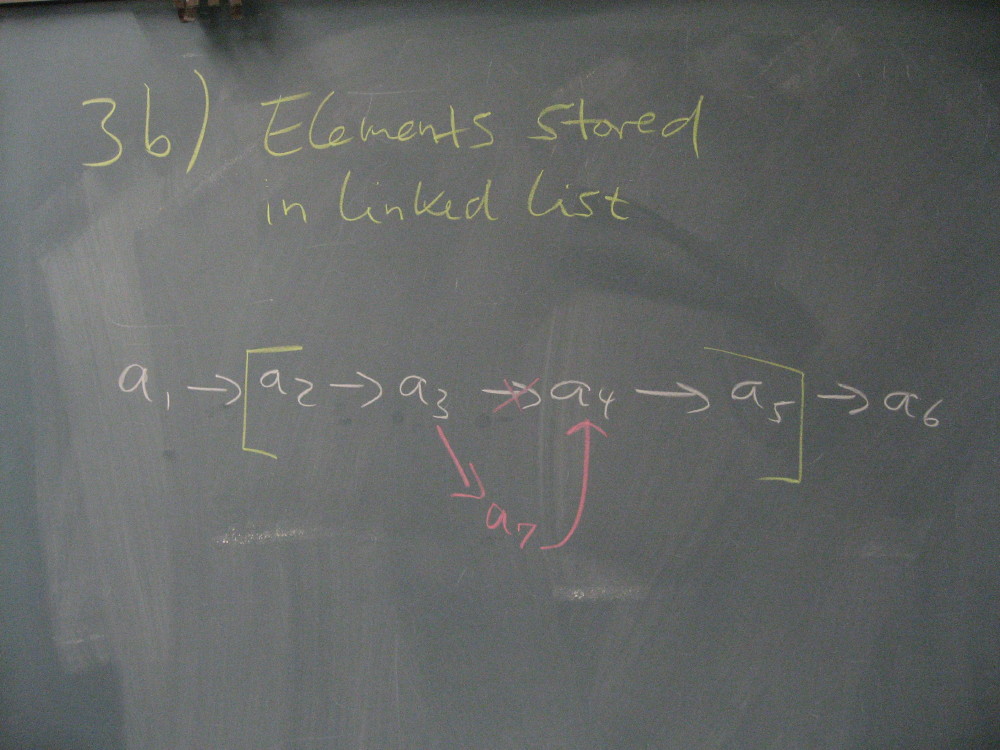 3b) Elements stored
in linked list
a1 → [a2 → a3 → a4 → a5] → a6
a7